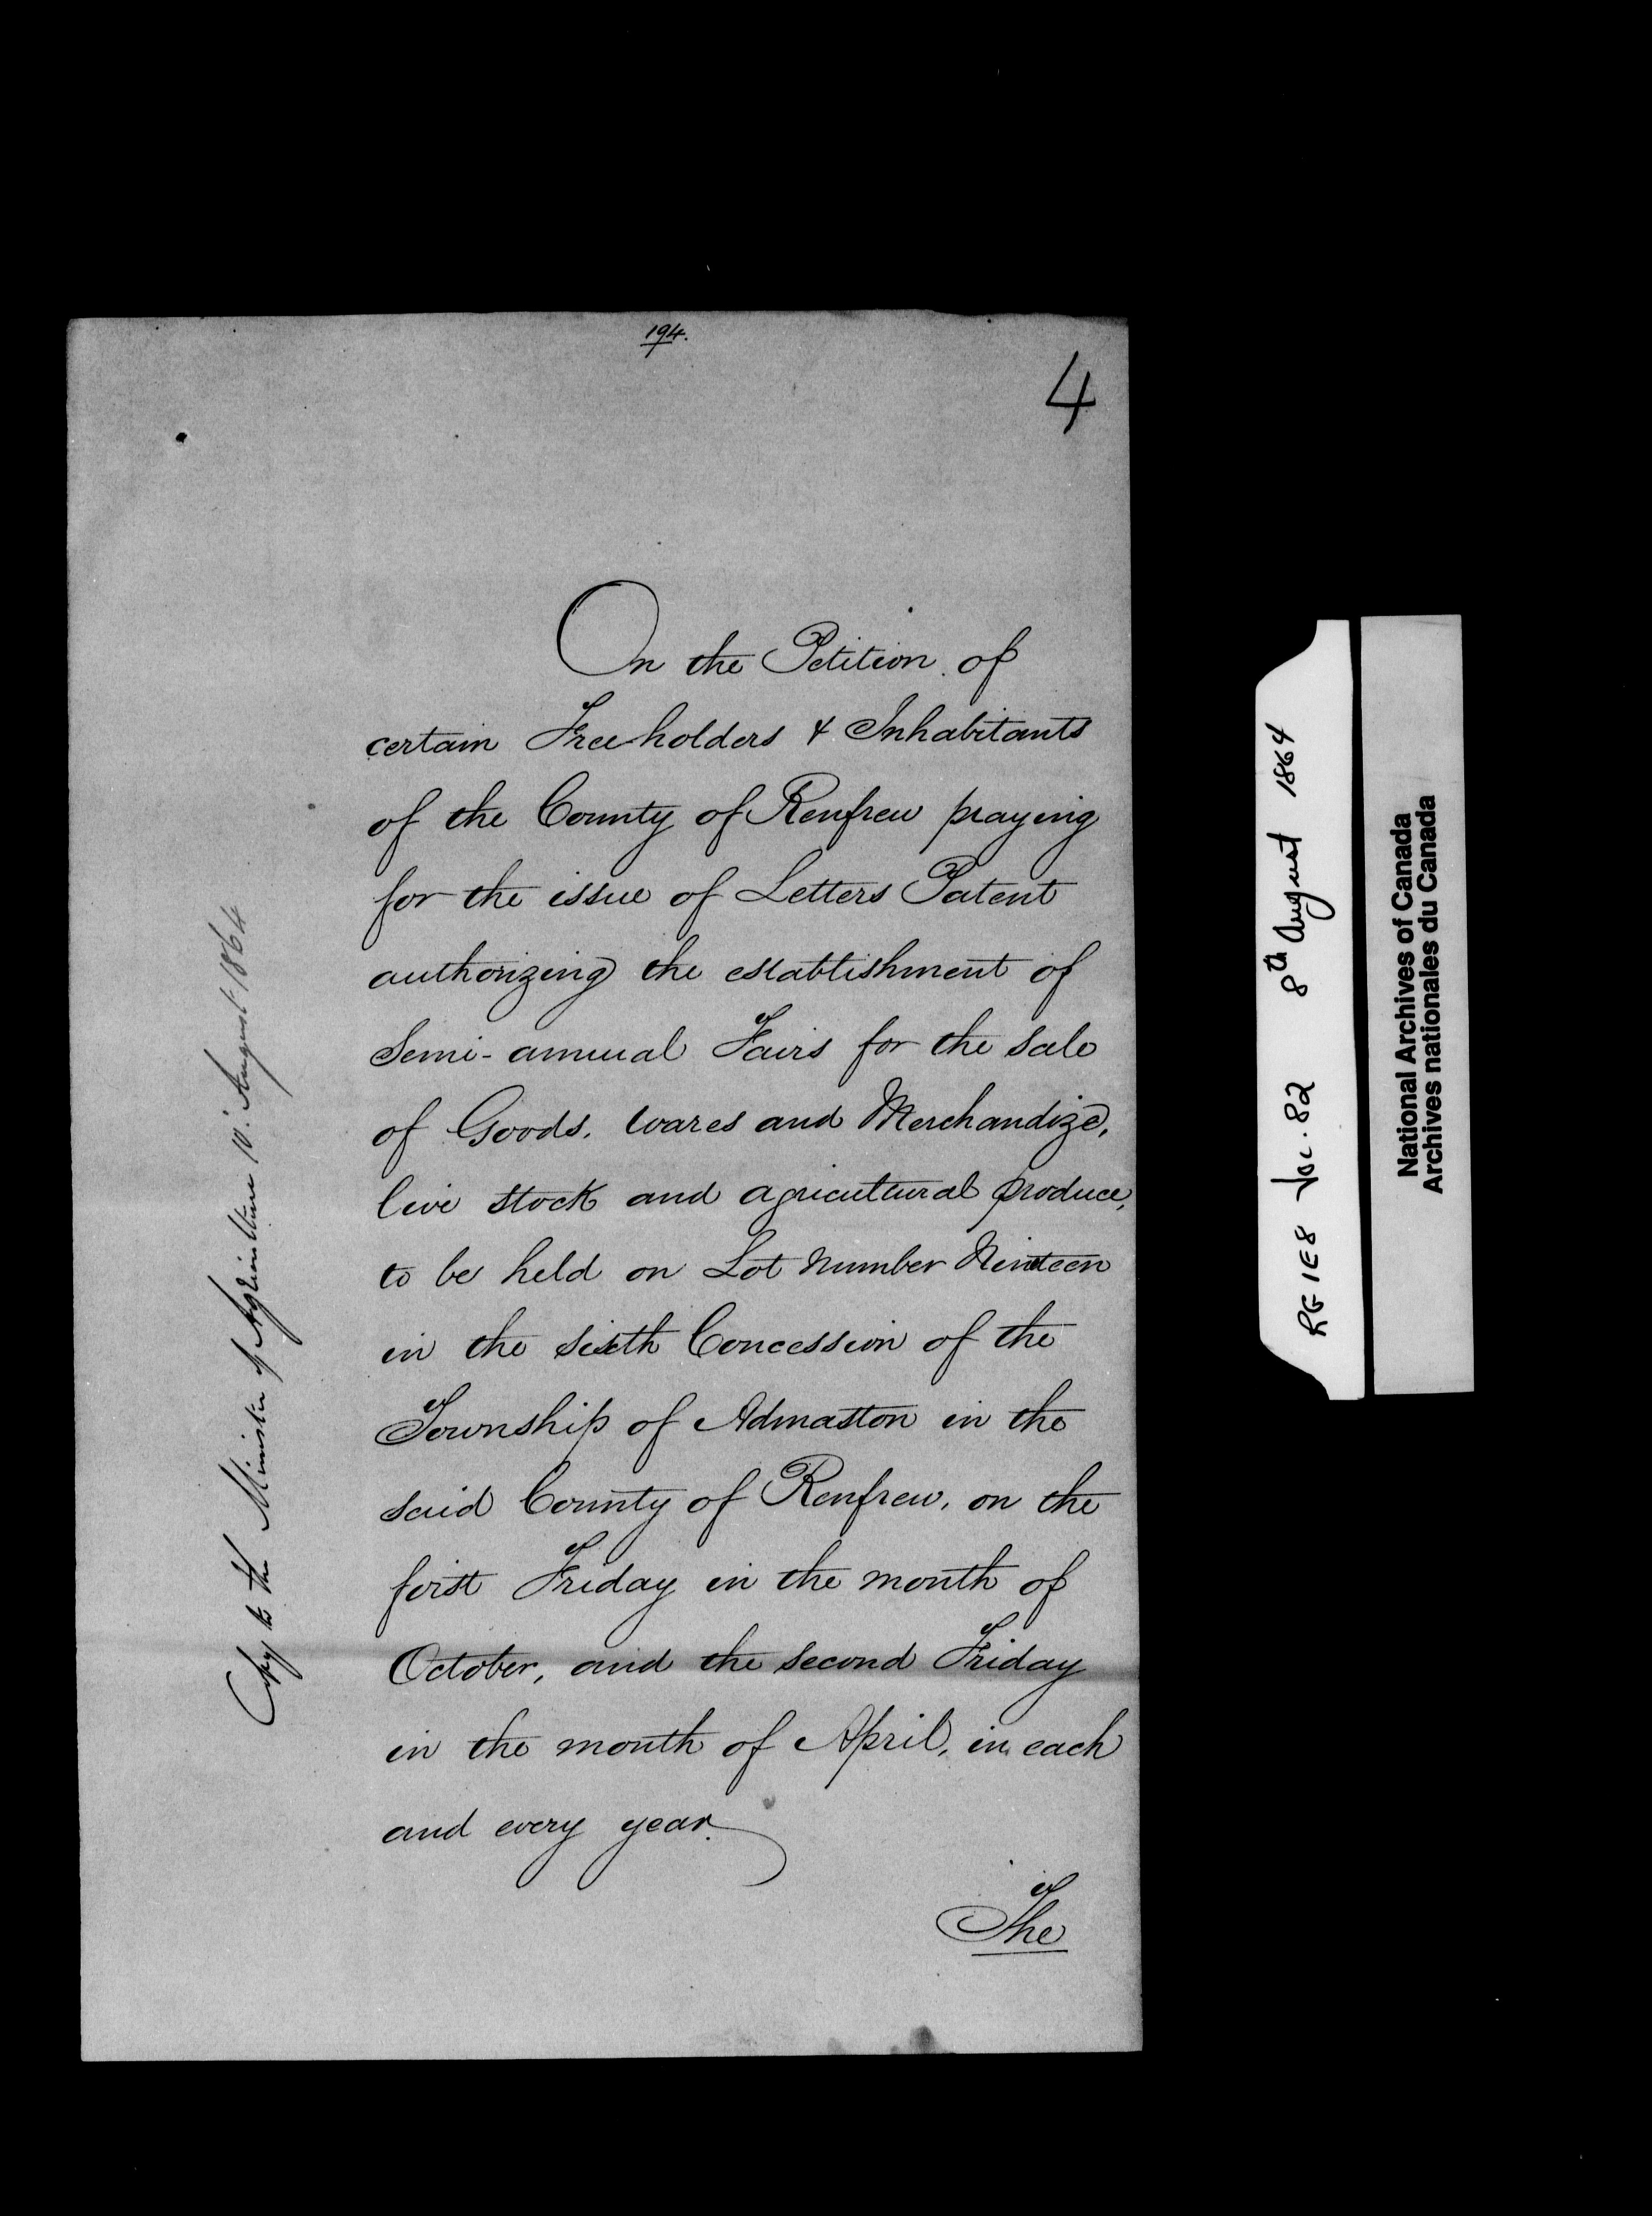 194.
4
On the Petition of
certain Freeholders & Inhabitants
of the County of Renfrew praying
for the issue of Letters Patent
authorizing the establishment of
Semi-annual Fairs for the sale
of Goods, wares and Merchandize,
live stock and agricultural produce,
to be held on Lot number Nineteen
in the sixth Concession of the
Township of Admaston in the
said County of Renfrew, on the
first Friday in the month of
October, and the second Friday
in the month of April, in each
and every year.
The
Copy to the Minister of Agriculture 10. August 1864
RG 1E8 Vol. 82 8th August 1864
National Archives of Canada
Archives nationales du Canada